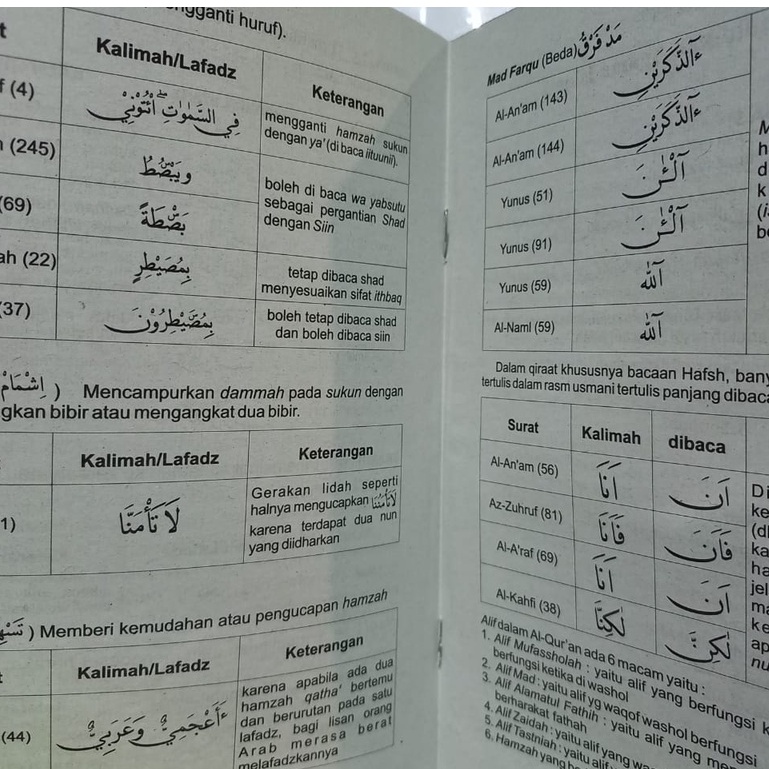 ngganti huruf).
t Kalimah/Lafadz Keterangan
f (4) فِي السَّمٰوٰتِ ائْتُوْنِيْ mengganti hamzah sukun
dengan ya' (di baca iituunii).
(245) وَيَبْصُۜطُ boleh di baca wa yabsutu
(69) بَصْۜطَةً sebagai pergantian Shad
dengan Siin
ah (22) بِمُصَيْطِرٍ tetap dibaca shad
menyesuaikan sifat ithbaq
(37) بِمُصَۜيْطِرُوْنَ boleh tetap dibaca shad
dan boleh dibaca siin
اِشْمَامْ ) Mencampurkan dammah pada sukun dengan
gkan bibir atau mengangkat dua bibir.
Kalimah/Lafadz Keterangan
1) لَا تَأْمَنَّا Gerakan lidah seperti
halnya mengucapkan
karena terdapat dua nun
yang diidharkan
) Memberi kemudahan atau pengucapan hamzah
t Kalimah/Lafadz Keterangan
(44) ءَاَعْجَمِيٌّ وَعَرَبِيٌّ karena apabila ada dua
hamzah qatha' bertemu
dan berurutan pada satu
lafadz, bagi lisan orang
Arab merasa berat
melafadzkannya
Mad Farqu (Beda) مَدْ فَرْقُ
Al-An'am (143) ءٰۤالذَّكَرَيْنِ
Al-An'am (144) ءٰۤالذَّكَرَيْنِ
Yunus (51) آلْـٰٔنَ
Yunus (91) آلْـٰٔنَ
Yunus (59) آللّٰهُ
Al-Naml (59) آللّٰهُ
Dalam qiraat khususnya bacaan Hafsh, bany
tertulis dalam rasm usmani tertulis panjang dibaca
Surat Kalimah dibaca
Al-An'am (56) اَنَا۠ اَنَ
Az-Zuhruf (81) فَاَنَا۠ فَاَنَ
Al-A'raf (69) اَنَا۠ اَنَ
Al-Kahfi (38) لٰكِنَّا۠ لٰكِنَّ
Alif dalam Al-Qur'an ada 6 macam yaitu :
1. Alif Mufassholah : yaitu alif yang berfungsi k
berfungsi ketika di washol
2. Alif Mad : yaitu alif yg waqof washol berfungsi
3. Alif Alamatul Fathih : yaitu alif yang men
berharakat fathah
4. Alif Zaidah : yaitu alif yang wa
5. Alif Tastniah : yaitu alif
6. Hamzah yang be